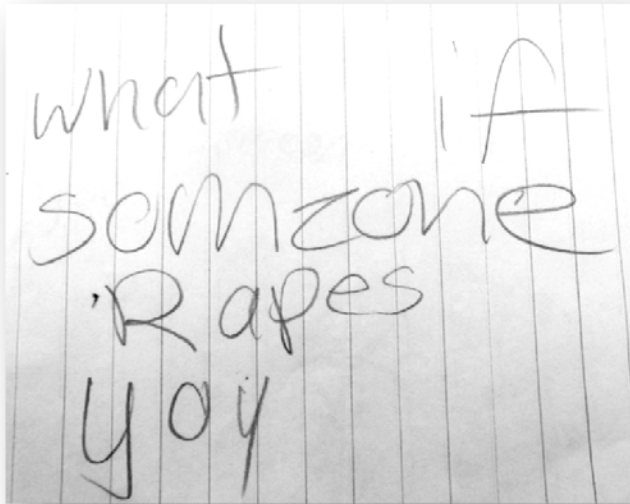 what if
somzone
Rapes
yoy